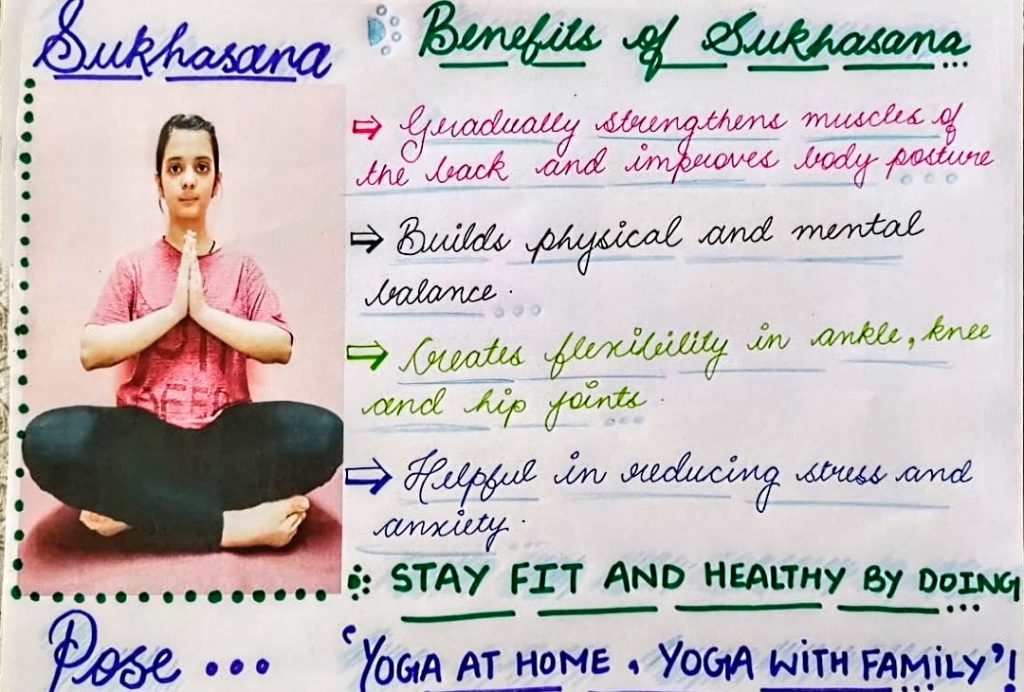 Sukhasana
Benefits of Sukhasana...
⇒ Gradually strengthens muscles of
the back and improves body posture
⇒ Builds physical and mental
balance.
⇒ Creates flexibility in ankle, knee
and hip joints.
⇒ Helpful in reducing stress and
anxiety.
STAY FIT AND HEALTHY BY DOING...
Pose ...
'YOGA AT HOME, YOGA WITH FAMILY'!